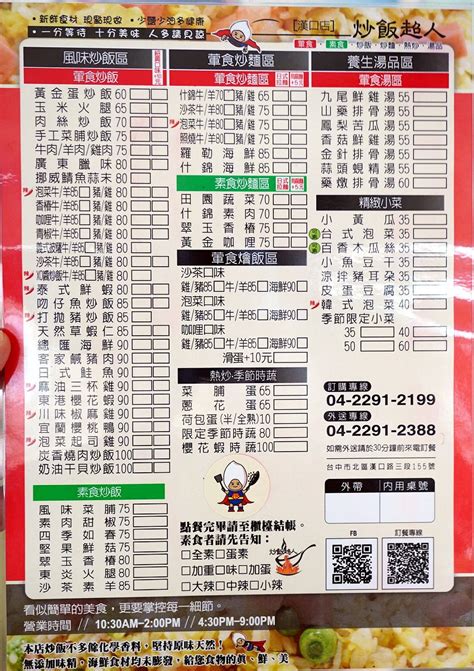 ·新鮮食材 現點現做 ·少鹽少油多健康
·一分等待 十分美味 人多請見諒
[漢口店] 炒飯超人
葷食、素食、炒飯、炒麵、熱炒、湯品
風味炒飯區
葷食炒飯
黃金蛋炒飯60
玉米火腿70
肉絲炒飯70
手工菜脯炒飯80
牛肉/羊肉/雞肉80
廣東臘味80
挪威鯖魚蒜末80
泡菜牛/羊85 豬/雞80
香椿牛/羊85 豬/雞80
咖哩牛/羊85 豬/雞80
沙茶牛/羊85 豬/雞80
泰式鮮蝦80
吻仔魚炒飯85
打拋豬炒飯85
天然草蝦仁85
總匯海鮮90
客家鹹豬肉90
日式鮭魚90
麻油三杯雞90
東港櫻花蝦90
川味椒麻雞90
宜蘭櫻桃鴨90
泡菜起司雞90
炭香燒肉炒飯100
奶油干貝炒飯100
素食炒飯
風味菜脯75
素肉甜椒75
四季如春75
堅果鮮菇75
翠玉香椿80
東炎火腿80
沙茶素羊85
葷食炒麵區
什錦牛/羊70 豬/雞65
沙茶牛/羊80 豬/雞75
泡菜牛/羊80 豬/雞75
照燒牛/羊80 豬/雞75
羅勒海鮮85
什錦海鮮85
素食炒麵區
田園蔬菜70
什錦素肉70
翠玉香椿70
黃金咖哩70
葷食燴飯區
沙茶口味
雞/豬85 牛/羊85 海鮮90
泡菜口味
雞/豬85 牛/羊85 海鮮90
咖哩口味
雞/豬85 牛/羊85 海鮮90
滑蛋+10元
熱炒·季節時蔬
菜脯蛋50
蔥花蛋50
荷包蛋(半/全熟)10
限定季節時蔬80
櫻花蝦時蔬100
養生湯品區
葷食湯區
九尾鮮雞湯55
山藥排骨湯55
鳳梨苦瓜湯55
香菇鮮雞湯55
金針排骨湯55
蒜頭蜆精湯55
藥燉排骨湯55
精緻小菜
小黃瓜35
台式泡菜35
百香木瓜絲35
小魚豆干35
涼拌豬耳朵35
皮蛋豆腐35
韓式泡菜40
季節限定小菜
35 40
50 60
訂購專線
04-2291-2199
外送專線
04-2291-2388
如需外送請於30分鐘前來電訂餐
台中市北區漢口路三段155號
外帶 內用桌號
FB 訂餐專線
點餐完畢請至櫃檯結帳。
素食者請先告知:
全素 蛋素
加重口味 加蛋
大辣 中辣 小辣
炒飯超人
看似簡單的美食,更要掌控每一細節。
營業時間 // 10:30AM–2:00PM // 4:30PM–9:00PM
本店炒飯不多餘化學香料,堅持原味天然!
無添加味精,海鮮食材均未膨發,給您食物的真、鮮、美